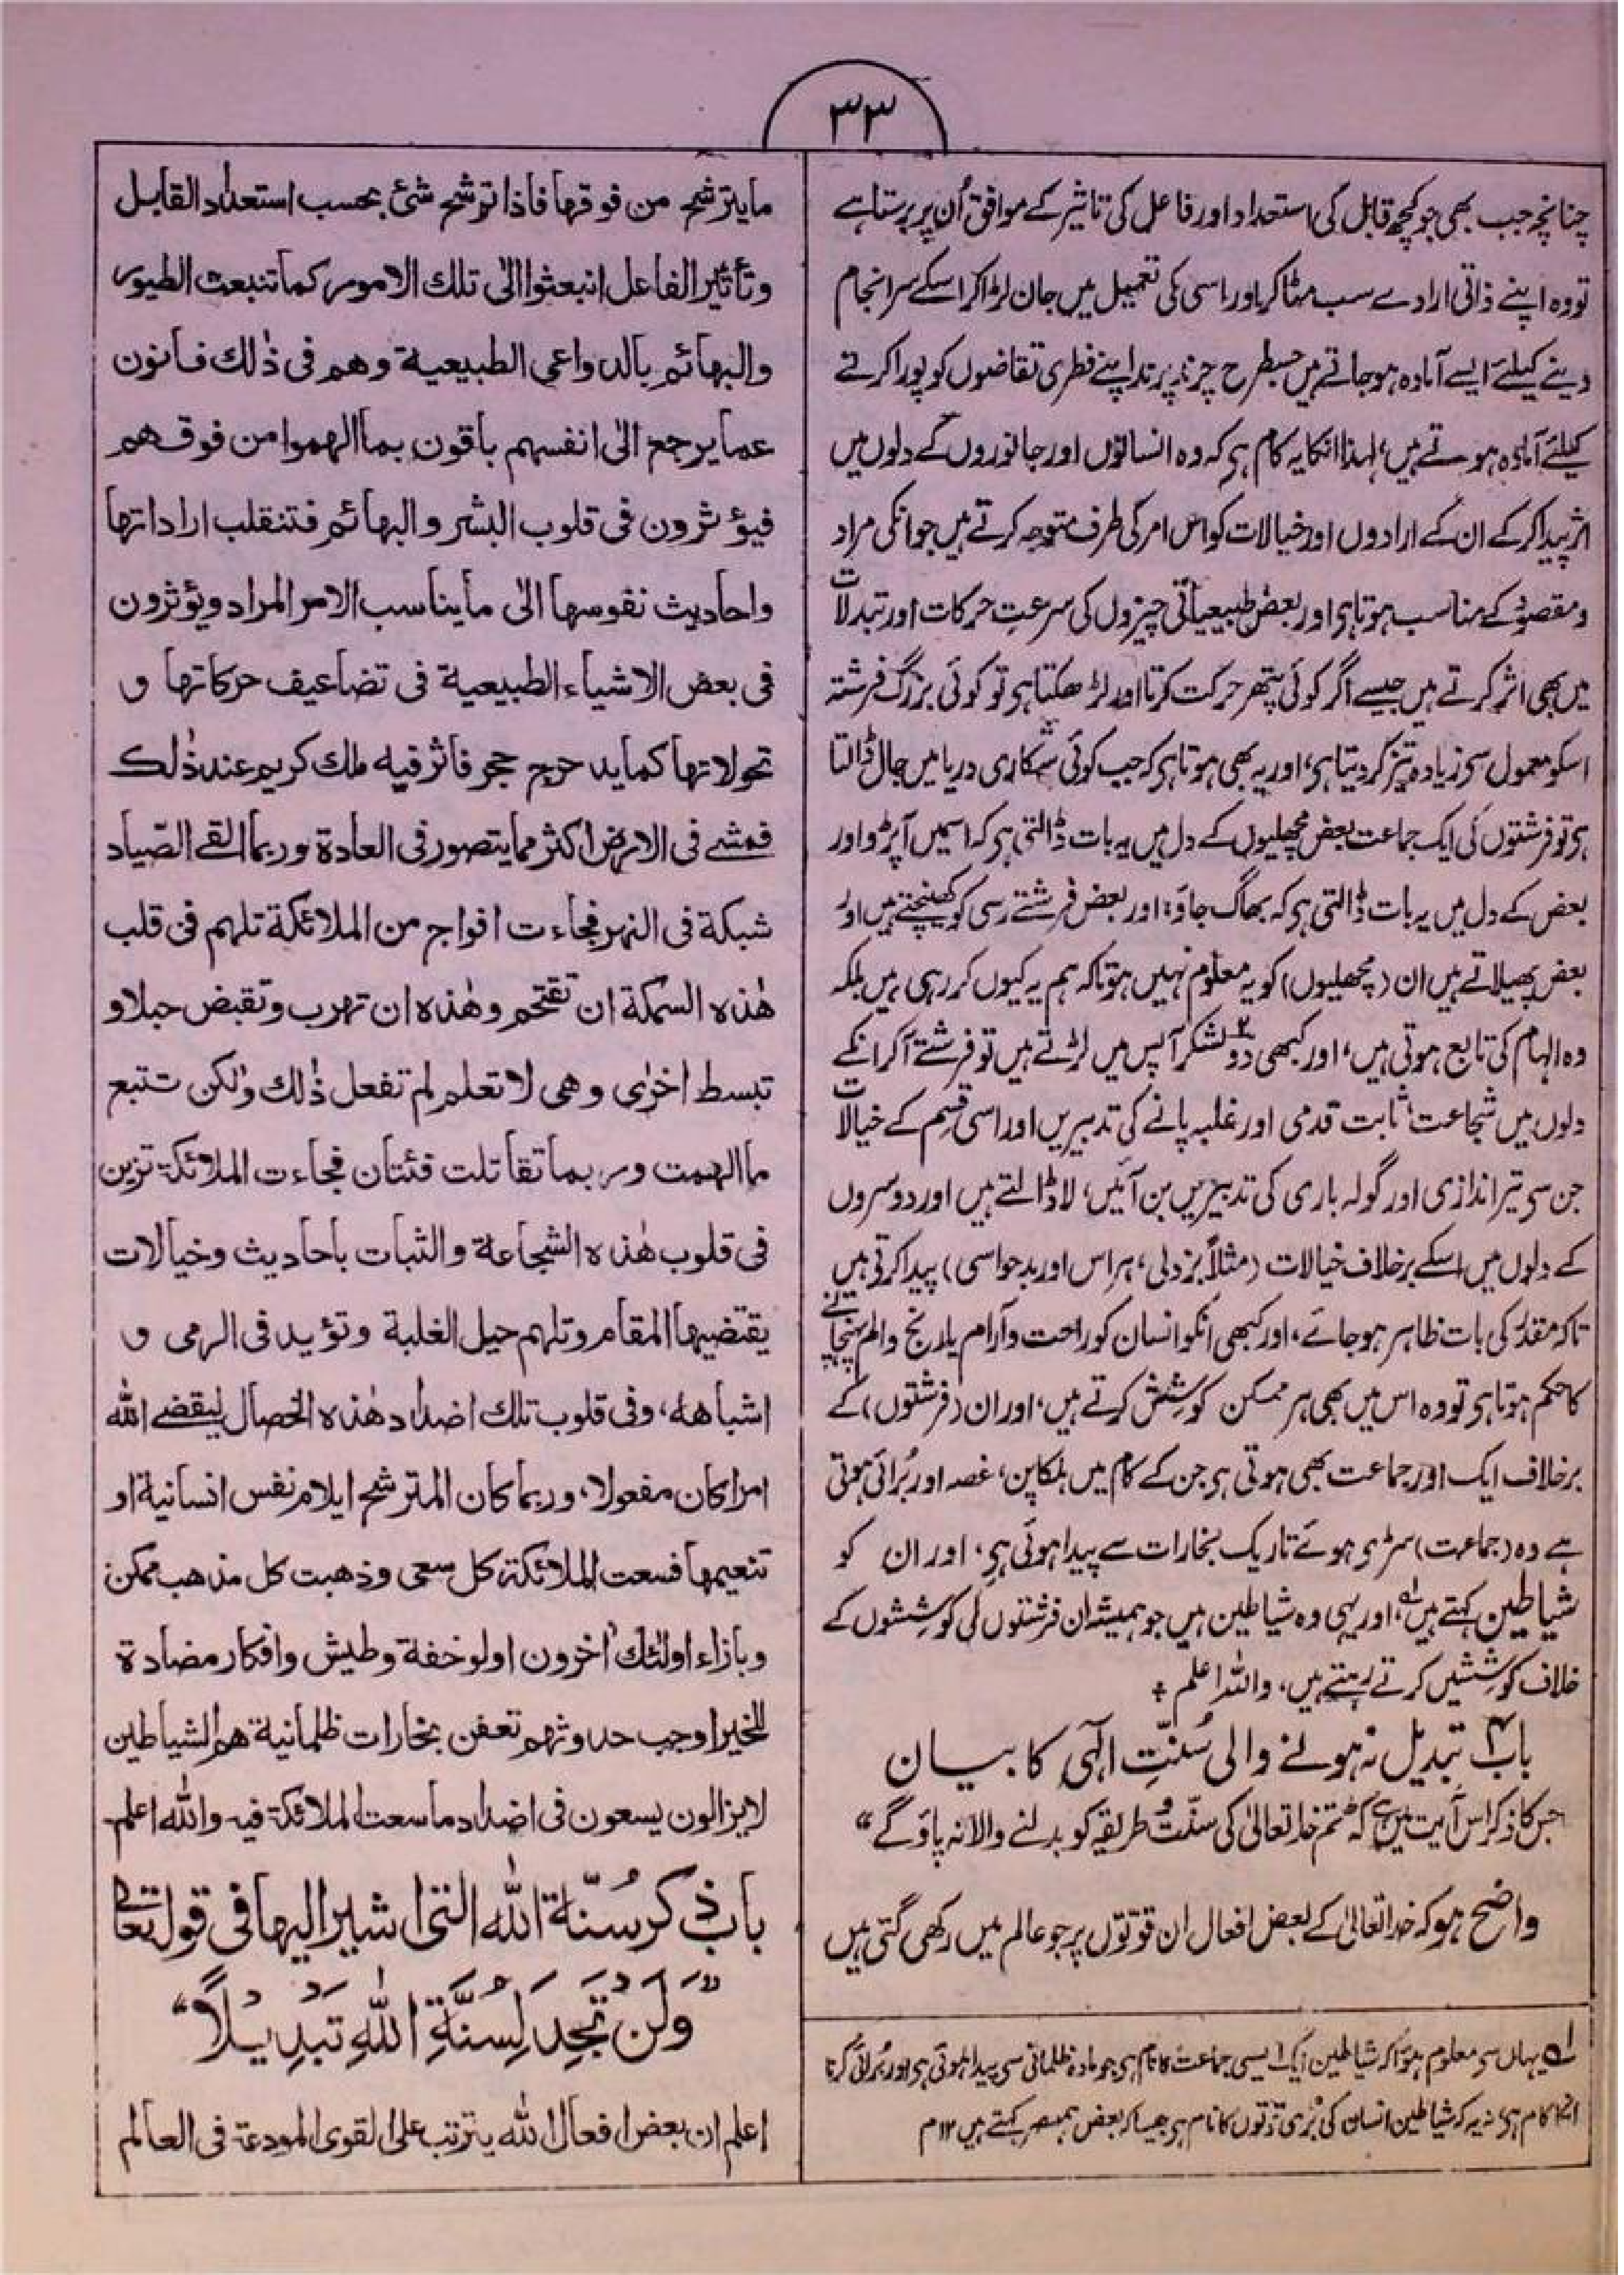 ۳۳
چنانچہ جب بھی جو کچھ قابل کی استعداد اور فاعل کی تاثیر کے موافق اُن پر برستا ہے
تو وہ اپنے ذاتی ارادے سب مٹاکر اور اسی کی تعمیل میں جان لڑا کر اسکے سرانجام
دینے کیلئے ایسے آمادہ ہوجاتے ہیں جسطرح چرند پرند اپنے فطری تقاضوں کو پورا کرتے
کیلئے آمادہ ہوتے ہیں، لہذا انکا یہ کام ہی کہ وہ انسانوں اور جانوروں کے دلوں میں
اثر پیدا کرکے ان کے ارادوں اور خیالات کو اس امر کی طرف متوجہ کرتے ہیں جو انکی مراد
و مقصود کے مناسب ہوتا ہی اور بعض طبیعیاتی چیزوں کی سرعتِ حرکات اور تبدلات
میں بھی اثر کرتے ہیں جیسے اگر کوئی پتھر حرکت کرتا اور لڑھکتا ہی تو کوئی بزرگ فرشتہ
اسکو معمول سی زیادہ تیز کردیتا ہی، اور یہ بھی ہوتا ہی کہ جب کوئی شکاری دریا میں جال ڈالتا
ہی تو فرشتوں کی ایک جماعت بعض مچھلیوں کے دل میں یہ بات ڈالتی ہی کہ اسمیں آپڑو اور
بعض کے دل میں یہ بات ڈالتی ہی کہ بھاگ جاؤ، اور بعض فرشتے رسی کو کھینچتے ہیں اور
بعض پھیلاتے ہیں ان (مچھلیوں) کو یہ معلوم نہیں ہوتا کہ ہم یہ کیوں کر رہی ہیں بلکہ
وہ الہام کی تابع ہوتی ہیں، اور کبھی دو۲ لشکر آپس میں لڑتے ہیں تو فرشتے آکر انکے
دلوں میں شجاعت، ثابت قدمی اور غلبہ پانے کی تدبیریں اور اسی قسم کے خیالات
جن سی تیر اندازی اور گولہ باری کی تدبیریں بن آئیں، لا ڈالتے ہیں اور دوسروں
کے دلوں میں اسکے برخلاف خیالات (مثلاً بزدلی، ہراس اور بدحواسی) پیدا کرتی ہیں
تاکہ مقدر کی بات ظاہر ہوجائے، اور کبھی انکو انسان کو راحت و آرام یا رنج و الم پہنچانے
کا حکم ہوتا ہی تو وہ اس میں بھی ہر ممکن کوشش کرتے ہیں، اور ان (فرشتوں) کے
برخلاف ایک اور جماعت بھی ہوتی ہی جن کے کام میں ہلکاپن، غصہ اور بُرائی ہوتی
ہے وہ (جماعت) سڑی ہوئے تاریک بخارات سے پیدا ہوئی ہی، اور ان کو
شیاطین کہتے ہیں، اور یہی وہ شیاطین ہیں جو ہمیشہ ان فرشتوں کی کوششوں کے
خلاف کوششیں کرتے رہتے ہیں، واللہ اعلم ۔
باب ۴ تبدیل نہ ہونے والی سُنّتِ الٰہی کا بیان
جس کا ذکر اس آیت میں ہے کہ "تم خدا تعالیٰ کی سنّت و طریقہ کو بدلنے والا نہ پاؤگے"
واضح ہو کہ خدا تعالیٰ کے بعض افعال ان قوّتوں پر جو عالم میں رکھی گئی ہیں
لہ یہاں سی معلوم ہوا کہ شیاطین ایک ایسی جماعت کا نام ہی جو مادہ ظلمانی سی پیدا ہوتی ہی اور بُرائی کرنا
انکا کام ہی، نہ یہ کہ شیاطین انسان کی بُری قوتوں کا نام ہی جیسا کہ بعض ہمعصر کہتے ہیں ۱۲ م
ما یترشح من فوقھا فاذا ترشح شئ بحسب استعداد القابل
وتأثیر الفاعل انبعثوا الیٰ تلك الامور کما تنبعث الطیور
والبھائم بالدواعی الطبیعیة وھم فی ذٰلك فانون
عما یرجع الیٰ انفسھم باقون بما الھموا من فوقھم
فیؤثرون فی قلوب البشر والبھائم فتنقلب اراداتھا
واحادیث نفوسھا الیٰ ما یناسب الامر المراد ویؤثرون
فی بعض الاشیاء الطبیعیة فی تضاعیف حرکاتھا و
تحولاتھا کما یدحرج حجر فاثر فیہ ملك کریم عند ذٰلك
فمشے فی الارض اکثر مما یتصور فی العادة وربما القے الصّیاد
شبکة فی النھر فجاءت افواج من الملائکة تلھم فی قلب
ھٰذہ السمکة ان تقتحم وھٰذہ ان تھرب وتقبض حبلا و
تبسط اخرٰی وھی لا تعلم لم تفعل ذٰلك ولکن تتبع
ما الھمت وربما تقاتلت فئتان فجاءت الملائکة تزین
فی قلوب ھٰذہ الشجاعة والثبات باحادیث وخیالات
یقتضیھا المقام وتلھم حیل الغلبة وتؤید فی الرمی و
اشباھہ، وفی قلوب تلك اضداد ھٰذہ الخصال لیقضے اللّٰه
امرا کان مفعولا، وربما کان المترشح ایلام نفس انسانیة او
تنعیمھا فسعت الملائکة کل سعی وذھبت کل مذھب ممکن
وبازاء اولئك اٰخرون اولو خفة وطیش وافکار مضادة
للخیر اوجب حدوثھم تعفن بخارات ظلمانیة ھم الشیاطین
لا یزالون یسعون فی اضداد ما سعت الملائکة فیہ واللّٰه اعلم۔
باب ذکر سُنّة اللّٰه التی اشیر الیھا فی قولہ تعالیٰ
"وَلَنْ تَجِدَ لِسُنَّةِ اللّٰهِ تَبْدِیْلًا"
اعلم ان بعض افعال اللّٰه یترتب علی القوی المودعة فی العالم